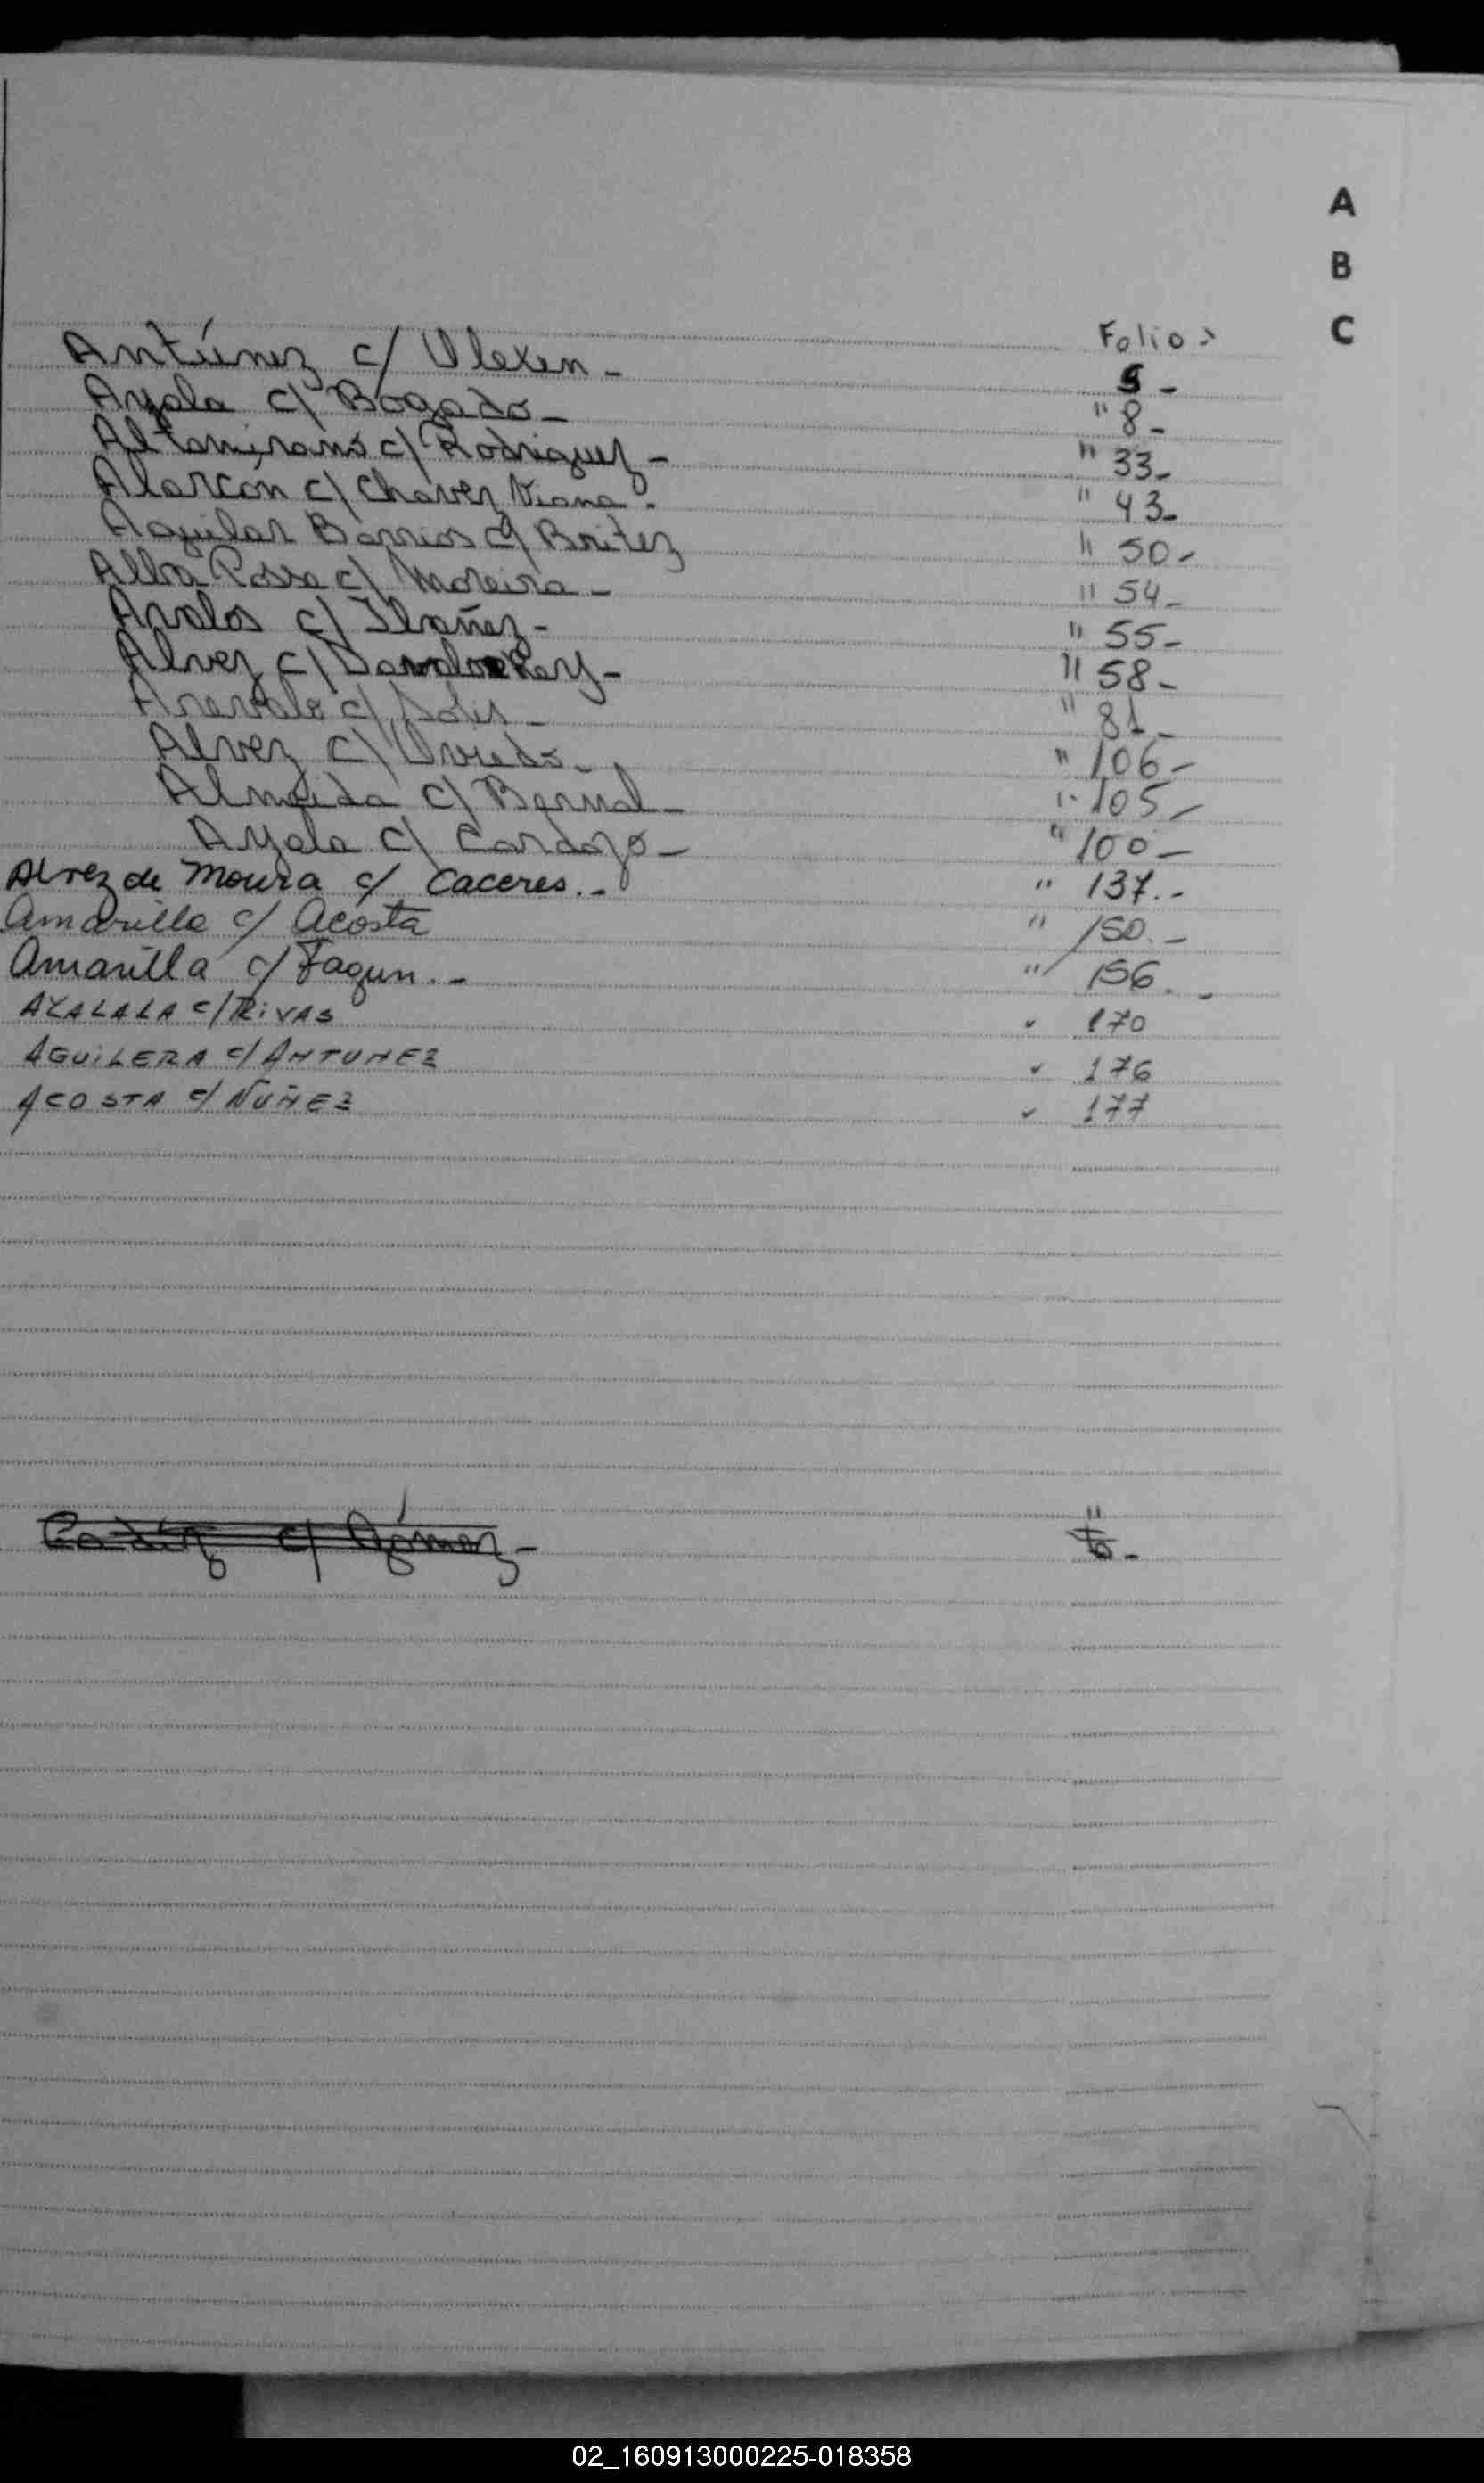 A
B
C
Folio:
Antúnez c/ Ulexen - 5 -
Ayala c/ Bogado - " 8 -
Altamirano c/ Rodriguez - " 33 -
Alarcon c/ Chavez Viana - " 43 -
Aguilar Barrios c/ Britez " 50 -
Alba Posse c/ Moreira - " 54 -
Avalos c/ Ibañez - " 55 -
Alvez c/ - " 58 -
Arevalo c/ Solis - " 81 -
Alvez c/ Oviedo - " 106 -
Almeida c/ Bernal - " 105 -
Ayala c/ Cardozo - " 100 -
Alvez de Moura c/ Caceres. - " 137. -
Amarilla c/ Acosta " 150. -
Amarilla c/ Fagun. - " 156. -
AYALALA c/ RIVAS " 170
AGUILERA c/ ANTUNEZ " 176
ACOSTA c/ NUÑEZ " 177
c/ Gómez - "
02_160913000225-018358